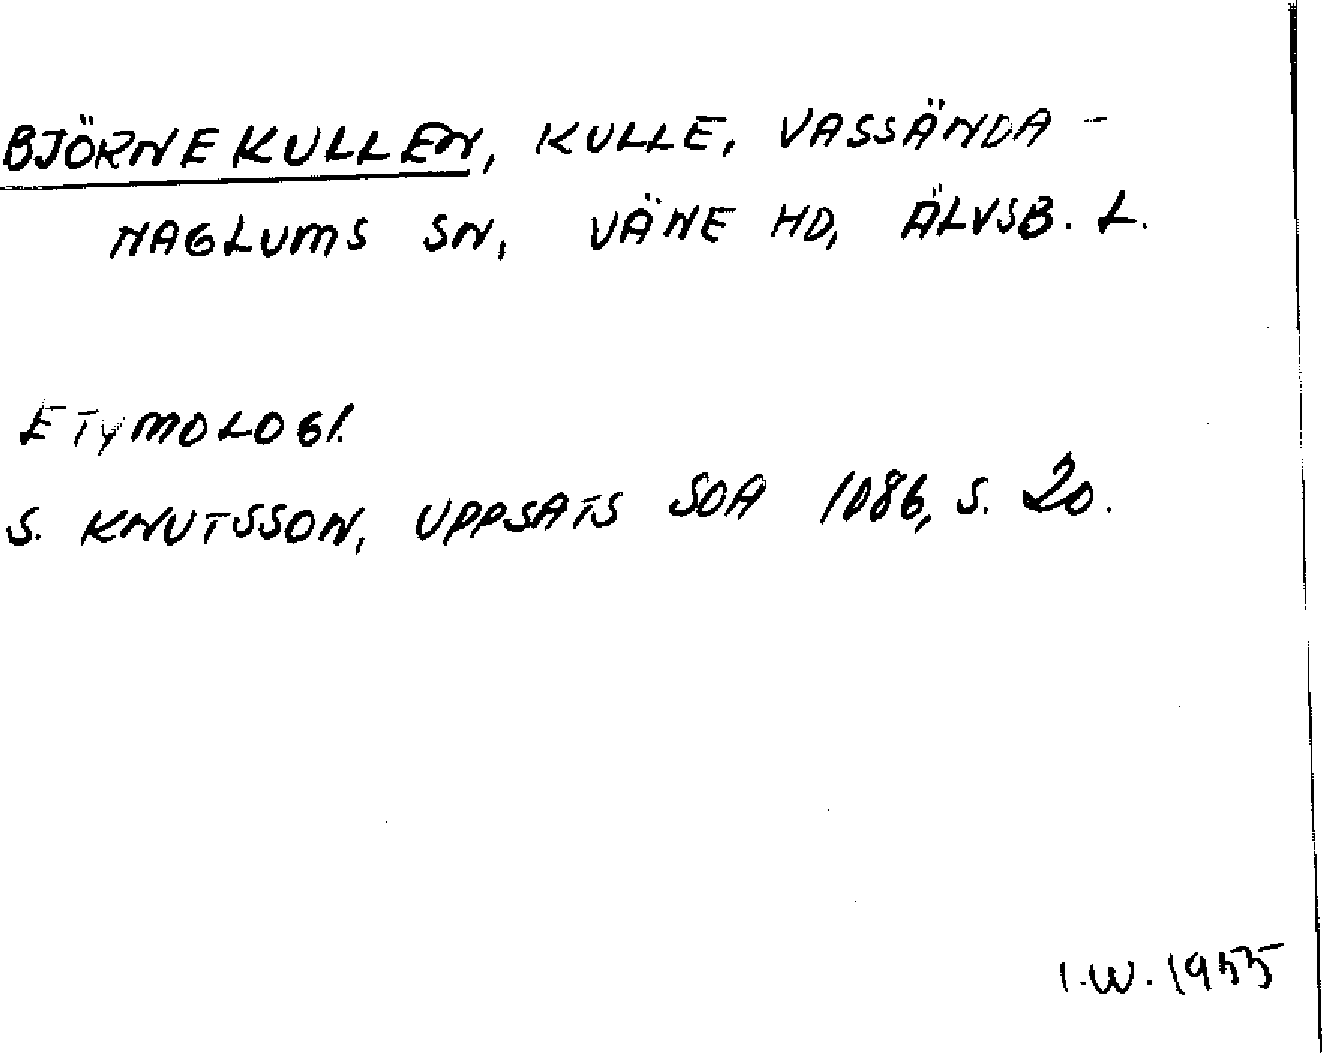 BJÖRNEKULLEN, KULLE, VASSÄNDA-
NAGLUMS SN, VÄNE HD, ÄLVSB. L.
ETYMOLOGI.
S. KNUTSSON, UPPSATS SOA 1086, S. 20.
I.W. 1955